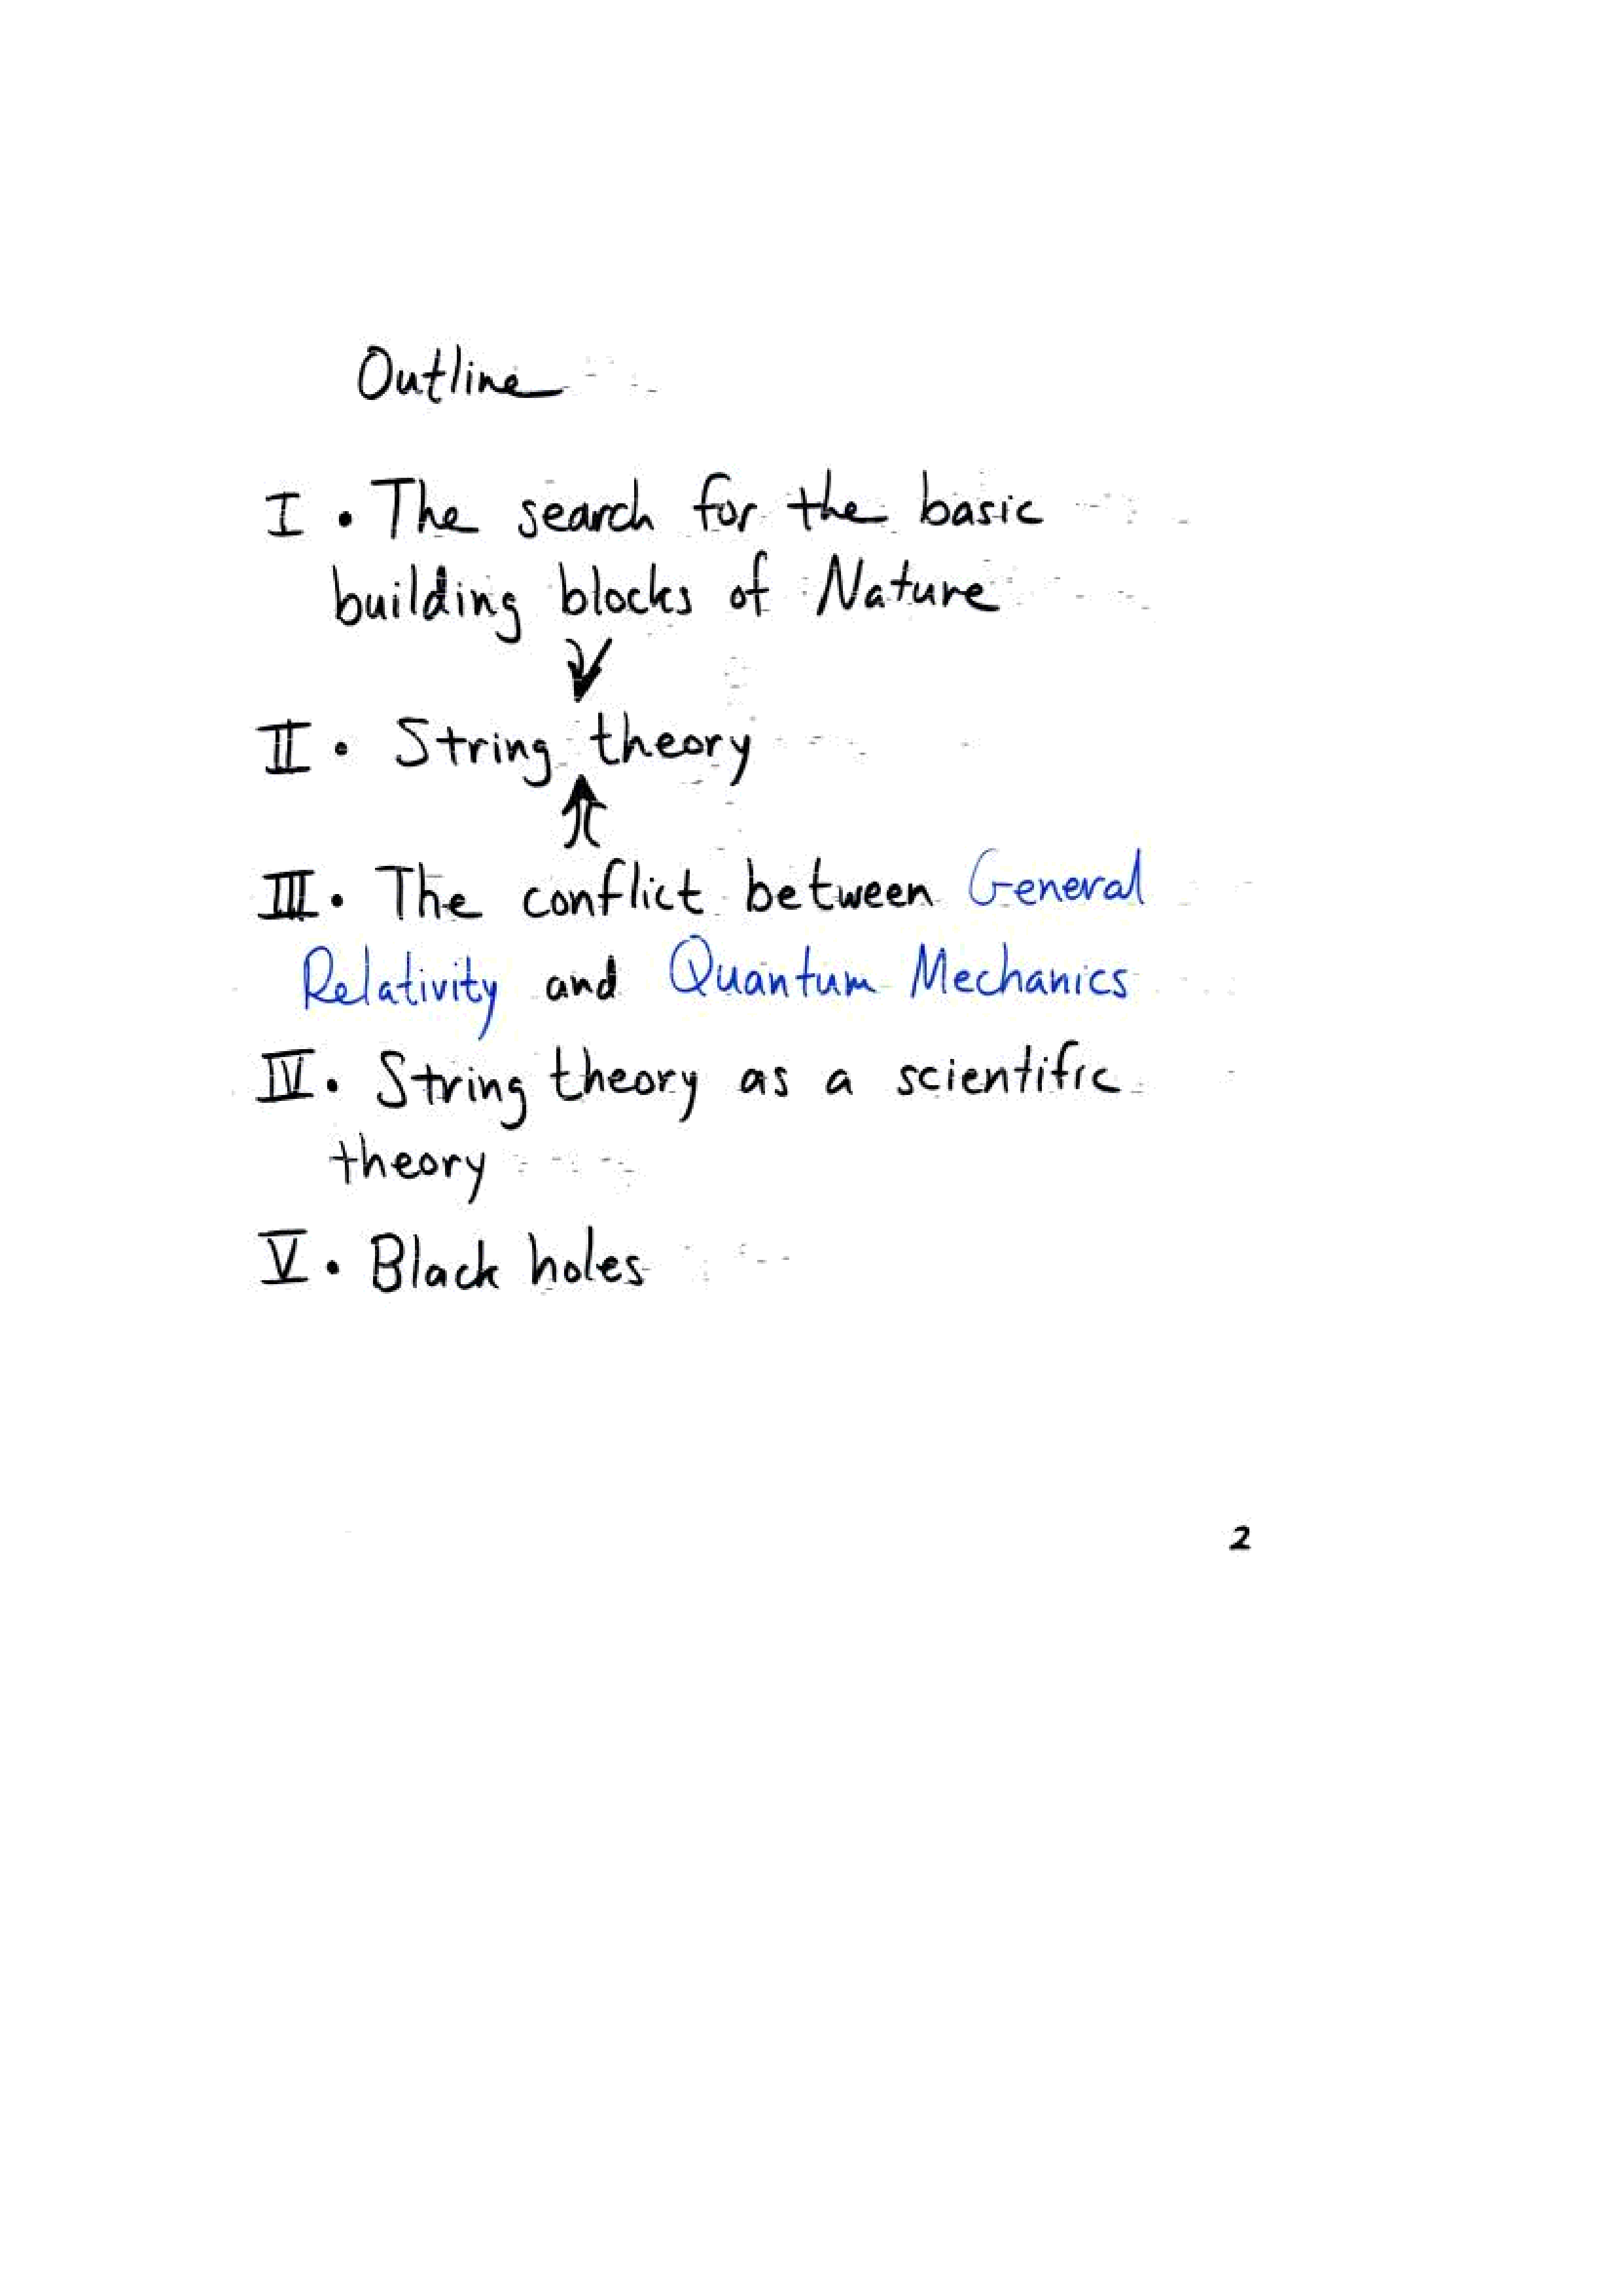 Outline
I. The search for the basic
building blocks of Nature
II. String theory
III. The conflict between General
Relativity and Quantum Mechanics
IV. String theory as a scientific
theory
V. Black holes
2